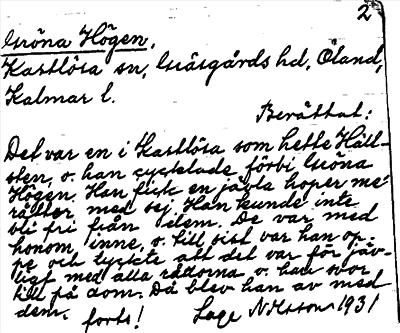 2
Gröna Högen,
Kastlösa sn, Gräsgårds hd, Öland,
Kalmar l.
Berättat:
Det var en i Kastlösa som hette Håll-
sten, o. han cycklade förbi Gröna
Högen. Han fick en jävla hoper me'
råtter med sej. Han kunde inte
bli fri från dem. De var med
honom inne, o. till sist var han op-
pe och tyckte att det var för jäv-
ligt med alla råttorna, o. han svor
till på dom. Då blev han av med
dem, forts! Lage Nilsson 1931